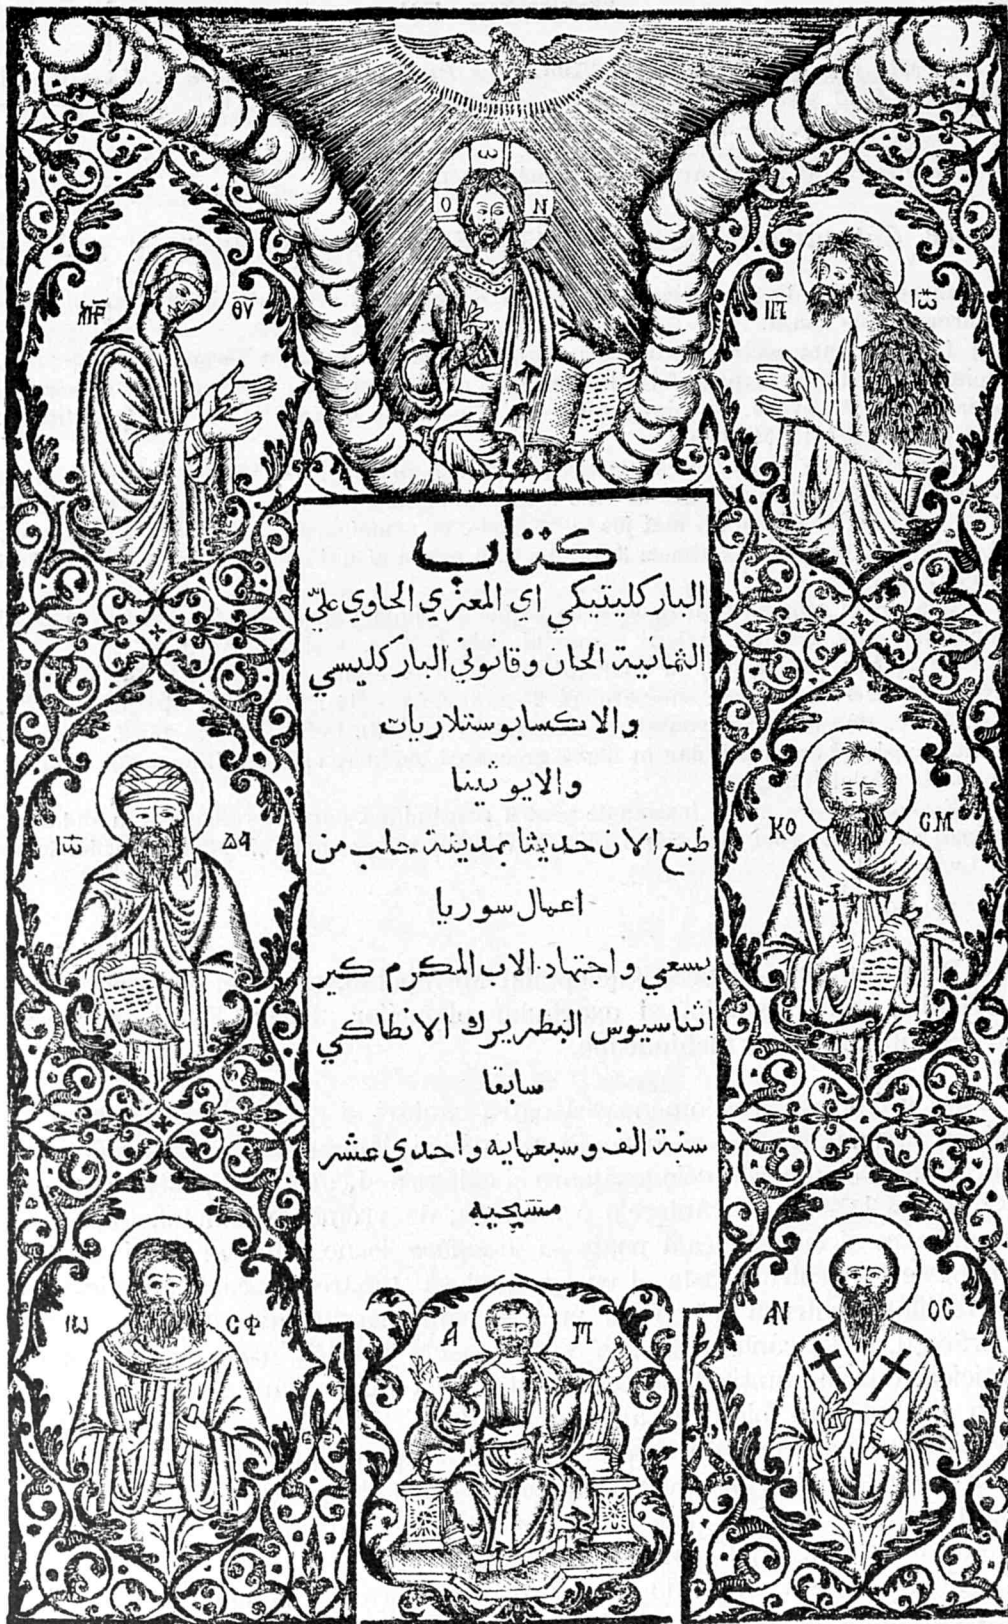 ω
Ο Ν
ΜΗΡ ΘΥ
ΙΠ Ιω
كتاب
الباركليتيكي اي المعزي الحاوي علي
الثمانية الحان وقانوني الباركليسي
والاكسابوستلاريات
والايوثينا
طبع الان حديثا بمدينة حلب من
اعمال سوريا
بسعي واجتهاد الاب المكرم كير
اثناسيوس البطريرك الانطاكي
سابقا
سنة الف وسبعماية واحدي عشر
مسيحية
Ιω ΔΑ
ΚΟ СΜ
Ιω СΦ
Α Π
ΑΝ ΟС